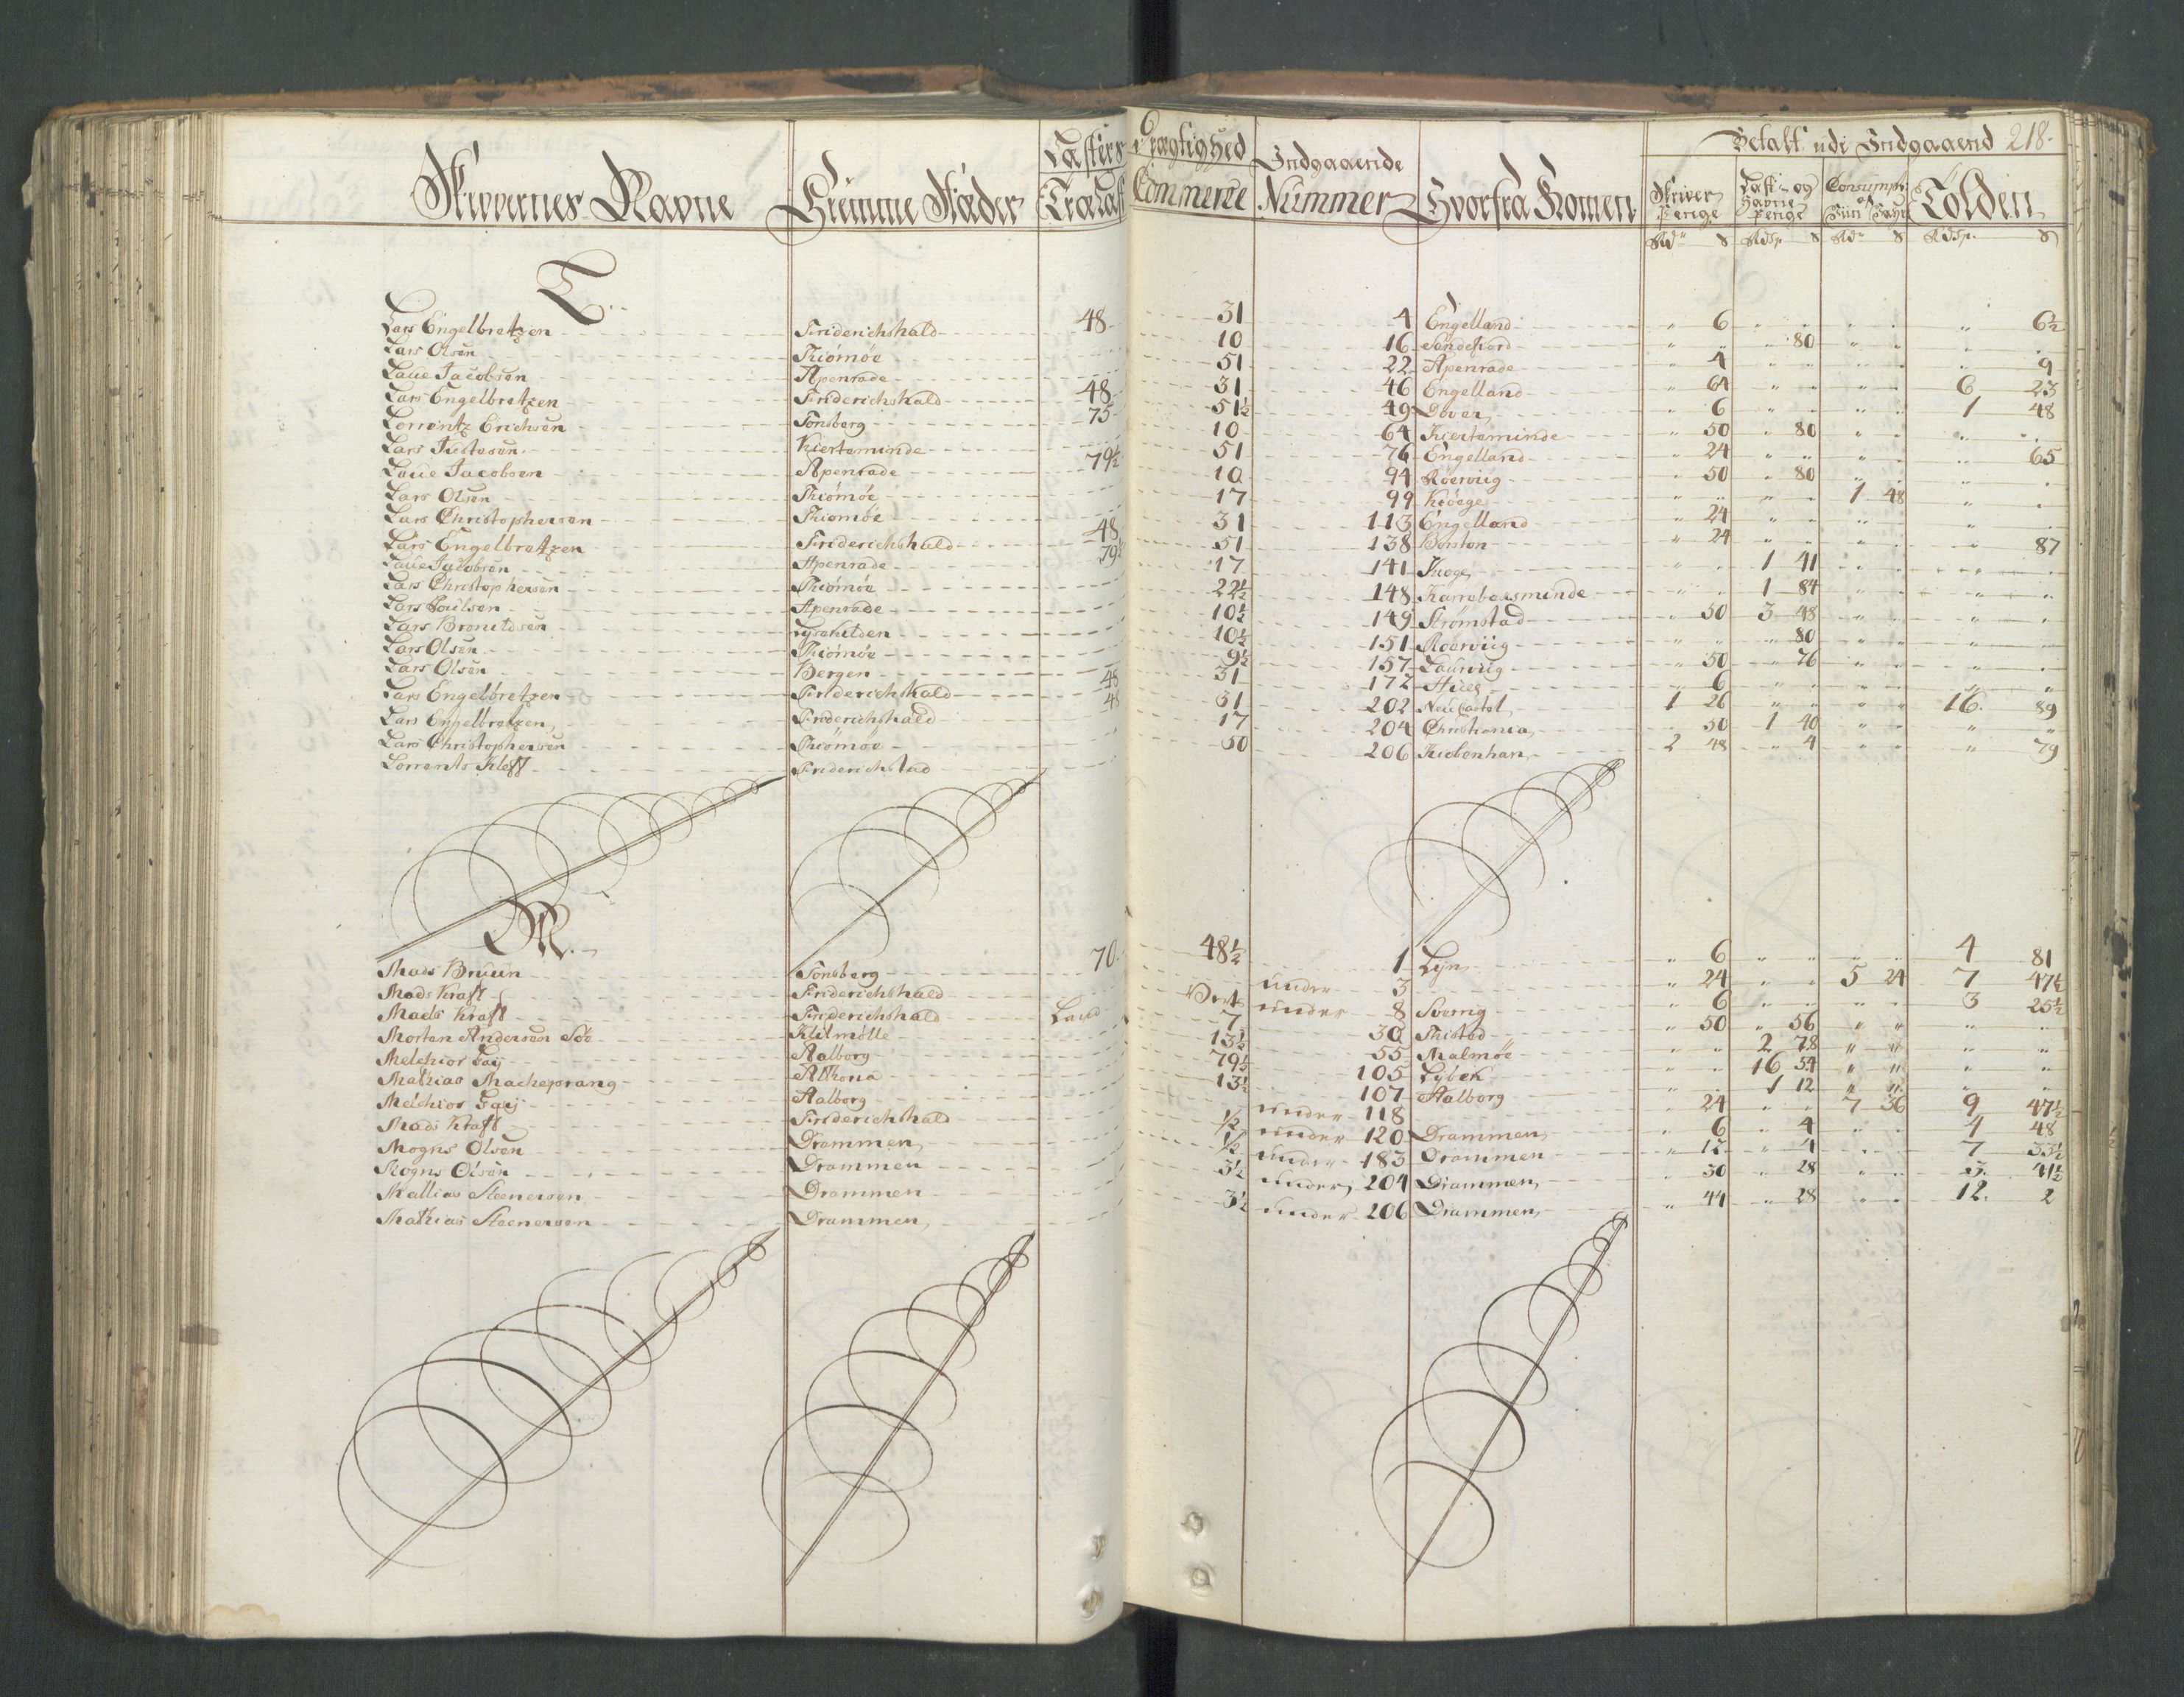 Skippernes Navne Hiemme Stæder Læsters Drægtighed Indgaaende Hvorfra Komen Betalt udi Indgaaend 218.
Træ Læst Commerce Nummer Skriver Penge Last- og Havne Penge Consumpt: og Tolden
Rdr ß Rdsr ß Rdr ß Rdsr. ß
L.
Lars Engelbretzen Friderichshald 48 31 4 Engelland " 6 " " " " " 6½
Lars Olsen Thiömöe 10 16 Sandefiord " " " 80 " " " "
Laue Jacobsen Apenrade 51 22 Apenrade " 4 " " " " " 9
Lars Engelbretzen Friderichshald 48 31 46 Engelland " 64 " " " " 6 23
Lorrentz Erichsen Tonsberg 75 51½ 49 Dover " 6 " " " " 1 48
Lars Justesen Kierteminde 10 64 Kierteminde " 50 " 80 " " " "
Laue Jacobsen Apenrade 79½ 51 76 Engelland " 24 " " " " " 65
Lars Olsen Thiömöe 10 94 Röerviig " 50 " 80 " " " "
Lars Christophersen Thiomöe 17 99 Kiöege " " " " 1 48 " "
Lars Engelbretzen Friderichshald 48 31 113 Engelland " 24 " " " " " "
Laue Jacobsen Apenrade 79½ 51 138 Boston " 24 " " " " " 87
Lars Christophersen Thiömöe 17 141 Kiöge " " 1 41 " " " "
Lars Poulsen Apenrade 22½ 148 Karrebeksminde " " 1 84 " " " "
Lars Bronildsen 10½ 149 Strømstad " 50 3 48 " " " "
Lars Olsen Thiömöe 10½ 151 Roerviig " " " 80 " " " "
Lars Olsen Bergen 9½ 157 Laurviig " 50 " 76 " " " "
Lars Engelbretzen Friderichshald 48 31 172 " 6 " " " " " "
Lars Engelbretzen Friderichshald 48 31 202 Neu Castel 1 26 " " " " 16 89
Lars Christophersen Thiömöe 17 204 Christiania " 50 1 40 " " " "
Lorrents Kleff Friderichstad 60 206 Kiebenhavn 2 48 " 4 " " " 79
M.
Mads Bruun Tonsberg 70 48½ 1 Lyn " 6 " " " " 4 81
Mads Kraft Friderichshald under 3 " 24 " " 5 24 7 47½
Mads Kraft Friderichshald under 8 Sverrig " 6 " " " " 3 25½
Morten Andersen Klitmölle 7 30 Thisted " 50 " 56 " " " "
Melchior Faij Aalborg 13½ 55 Malmöe " " 2 78 " " " "
Mathias Macheprang Althona 79½ 105 Lybek " " 16 54 " " " "
Melchior Faij Aalborg 13½ 107 Aalborg " " 1 12 " " " "
Mads Kraft Friderichshald under 118 " 24 " " 7 36 9 47½
Mogns Olsen Drammen ½ under 120 Drammen " 6 " 4 " " 4 48
Mogns Olsen Drammen ½ under 183 Drammen " 12 " 4 " " 7 33½
Mathias Steenersen Drammen 3½ under 204 Drammen " 30 " 28 " " 3 41½
Mathias Steenersen Drammen 3½ under 206 Drammen " 44 " 28 " " 12 2